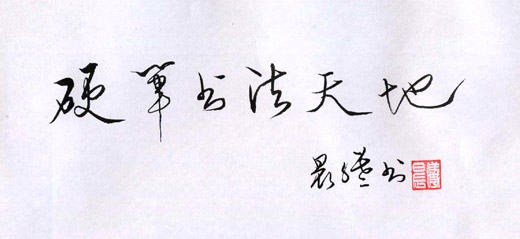 硬笔书法天地